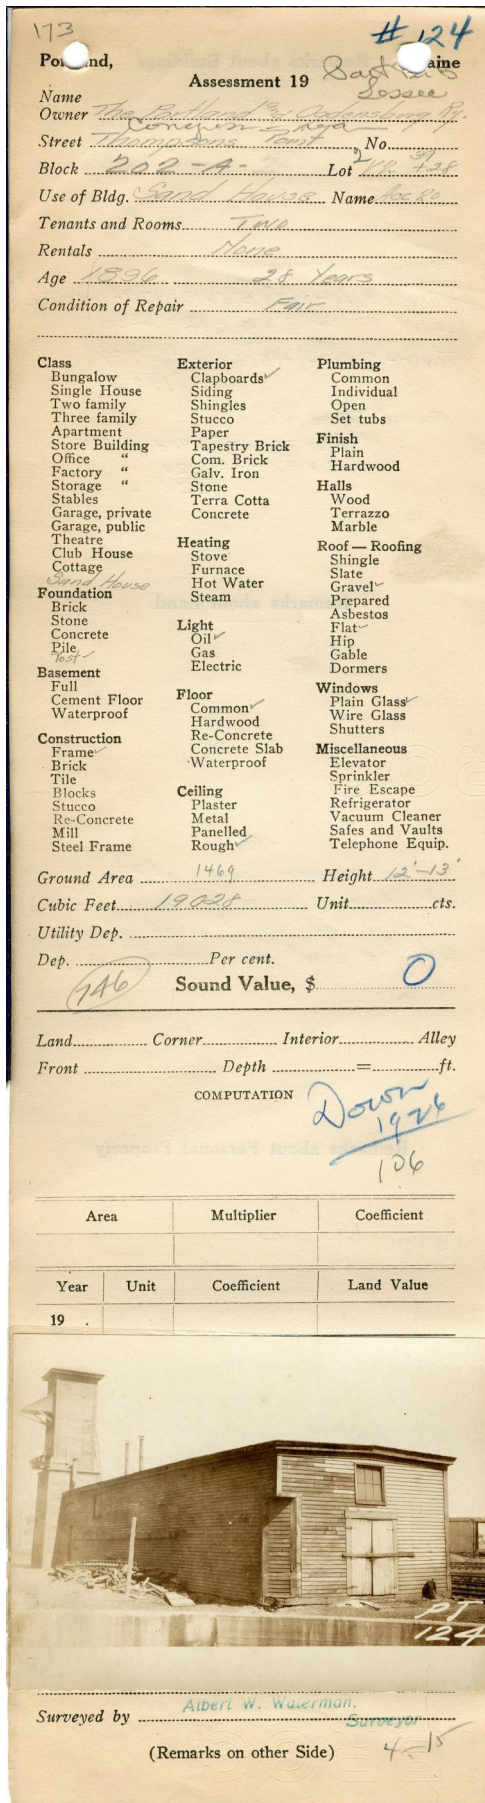 173 # 124
Portland, Maine
Assessment 19
Lessee
Name
Owner The Portland and Ogdensburg Ry.
Street Thompsons Point No.
Block 202-A- Lot
Use of Bldg. Sand House Name
Tenants and Rooms Two
Rentals None
Age 1896 28 Years
Condition of Repair Fair
Class
Bungalow
Single House
Two family
Three family
Apartment
Store Building
Office "
Factory "
Storage "
Stables
Garage, private
Garage, public
Theatre
Club House
Cottage
Sand House
Foundation
Brick
Stone
Concrete
Pile
Post ✓
Basement
Full
Cement Floor
Waterproof
Construction
Frame ✓
Brick
Tile
Blocks
Stucco
Re-Concrete
Mill
Steel Frame
Exterior
Clapboards ✓
Siding
Shingles
Stucco
Paper
Tapestry Brick
Com. Brick
Galv. Iron
Stone
Terra Cotta
Concrete
Heating
Stove
Furnace
Hot Water
Steam
Light
Oil ✓
Gas
Electric
Floor
Common ✓
Hardwood
Re-Concrete
Concrete Slab
Waterproof
Ceiling
Plaster
Metal
Panelled
Rough ✓
Plumbing
Common
Individual
Open
Set tubs
Finish
Plain
Hardwood
Halls
Wood
Terrazzo
Marble
Roof — Roofing
Shingle
Slate
Gravel ✓
Prepared
Asbestos
Flat ✓
Hip
Gable
Dormers
Windows
Plain Glass ✓
Wire Glass
Shutters
Miscellaneous
Elevator
Sprinkler
Fire Escape
Refrigerator
Vacuum Cleaner
Safes and Vaults
Telephone Equip.
Ground Area 1469 Height 12'-13'
Cubic Feet 19028 Unit cts.
Utility Dep.
Dep. Per cent.
746 Sound Value, $ 0
Land Corner Interior Alley
Front Depth = ft.
COMPUTATION
Down
1926
106
Area Multiplier Coefficient
Year Unit Coefficient Land Value
19 .
PT
124
Surveyed by Albert W. Waterman,
Surveyor
(Remarks on other Side) 4-15